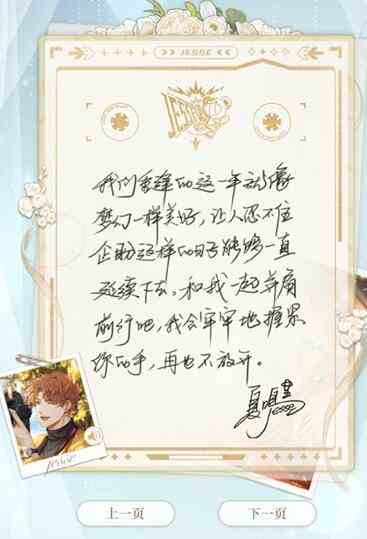 JESSE
JESSE
我们重逢的这一年就像
梦幻一样美好，让人忍不住
企盼这样的日子能够一直
延续下去。和我一起并肩
前行吧，我会牢牢地握紧
你的手，再也不放开。
夏鸣星
Jesse
上一页
下一页